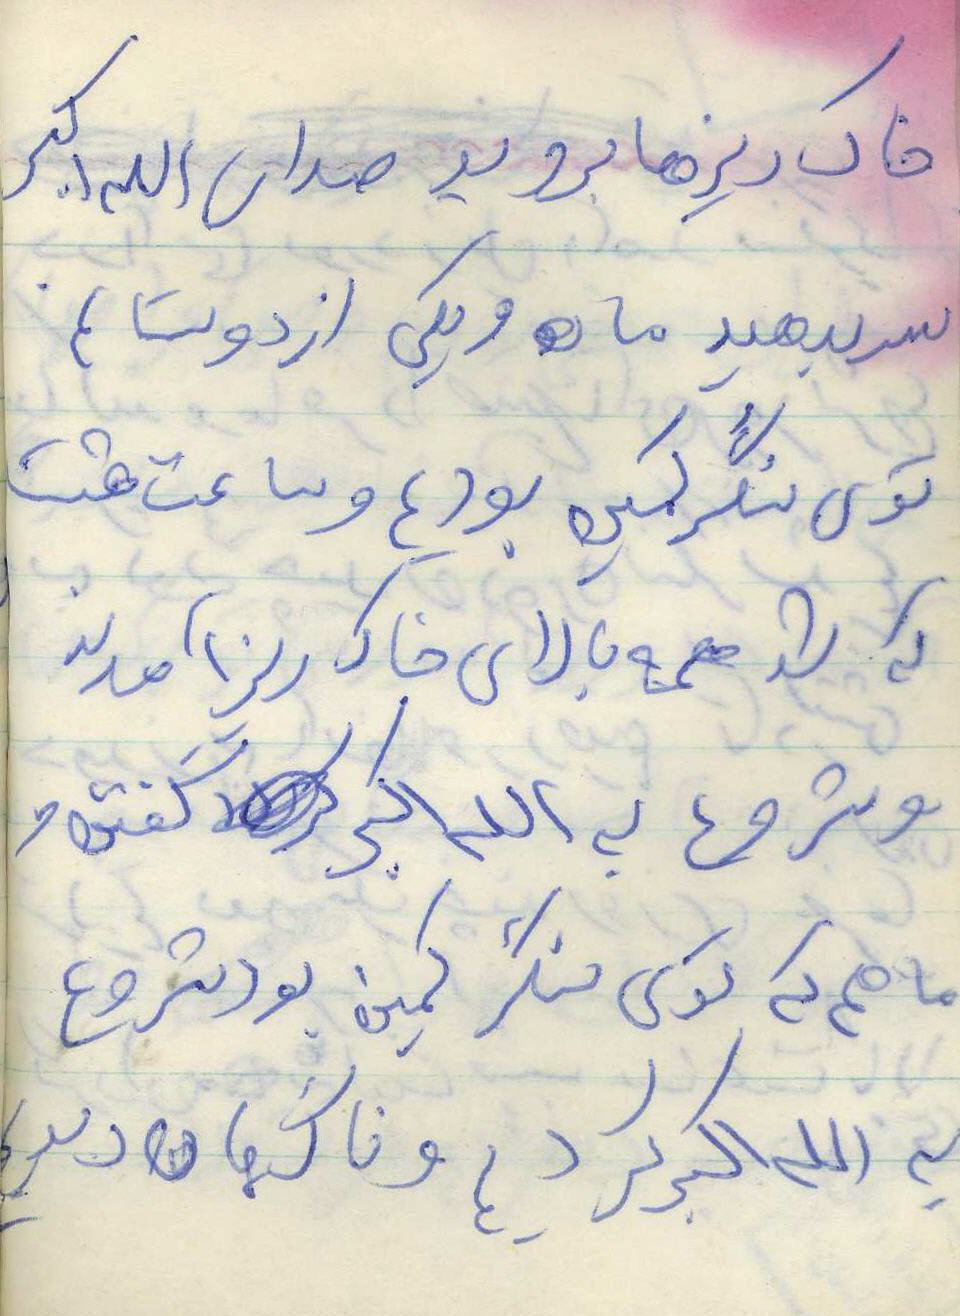 خاک ریزها بروید صدای الله اکبر
سربدهید ما و یکی از دوستانم
توی سنگر کمین بودیم و ساعت هشت
که شد همه بالای خاک ریز آمدند
و شروع به الله اکبر گفتن و
ما هم که توی سنگر کمین بود شروع
به الله اکبر کردیم و ناگهان دیدیم